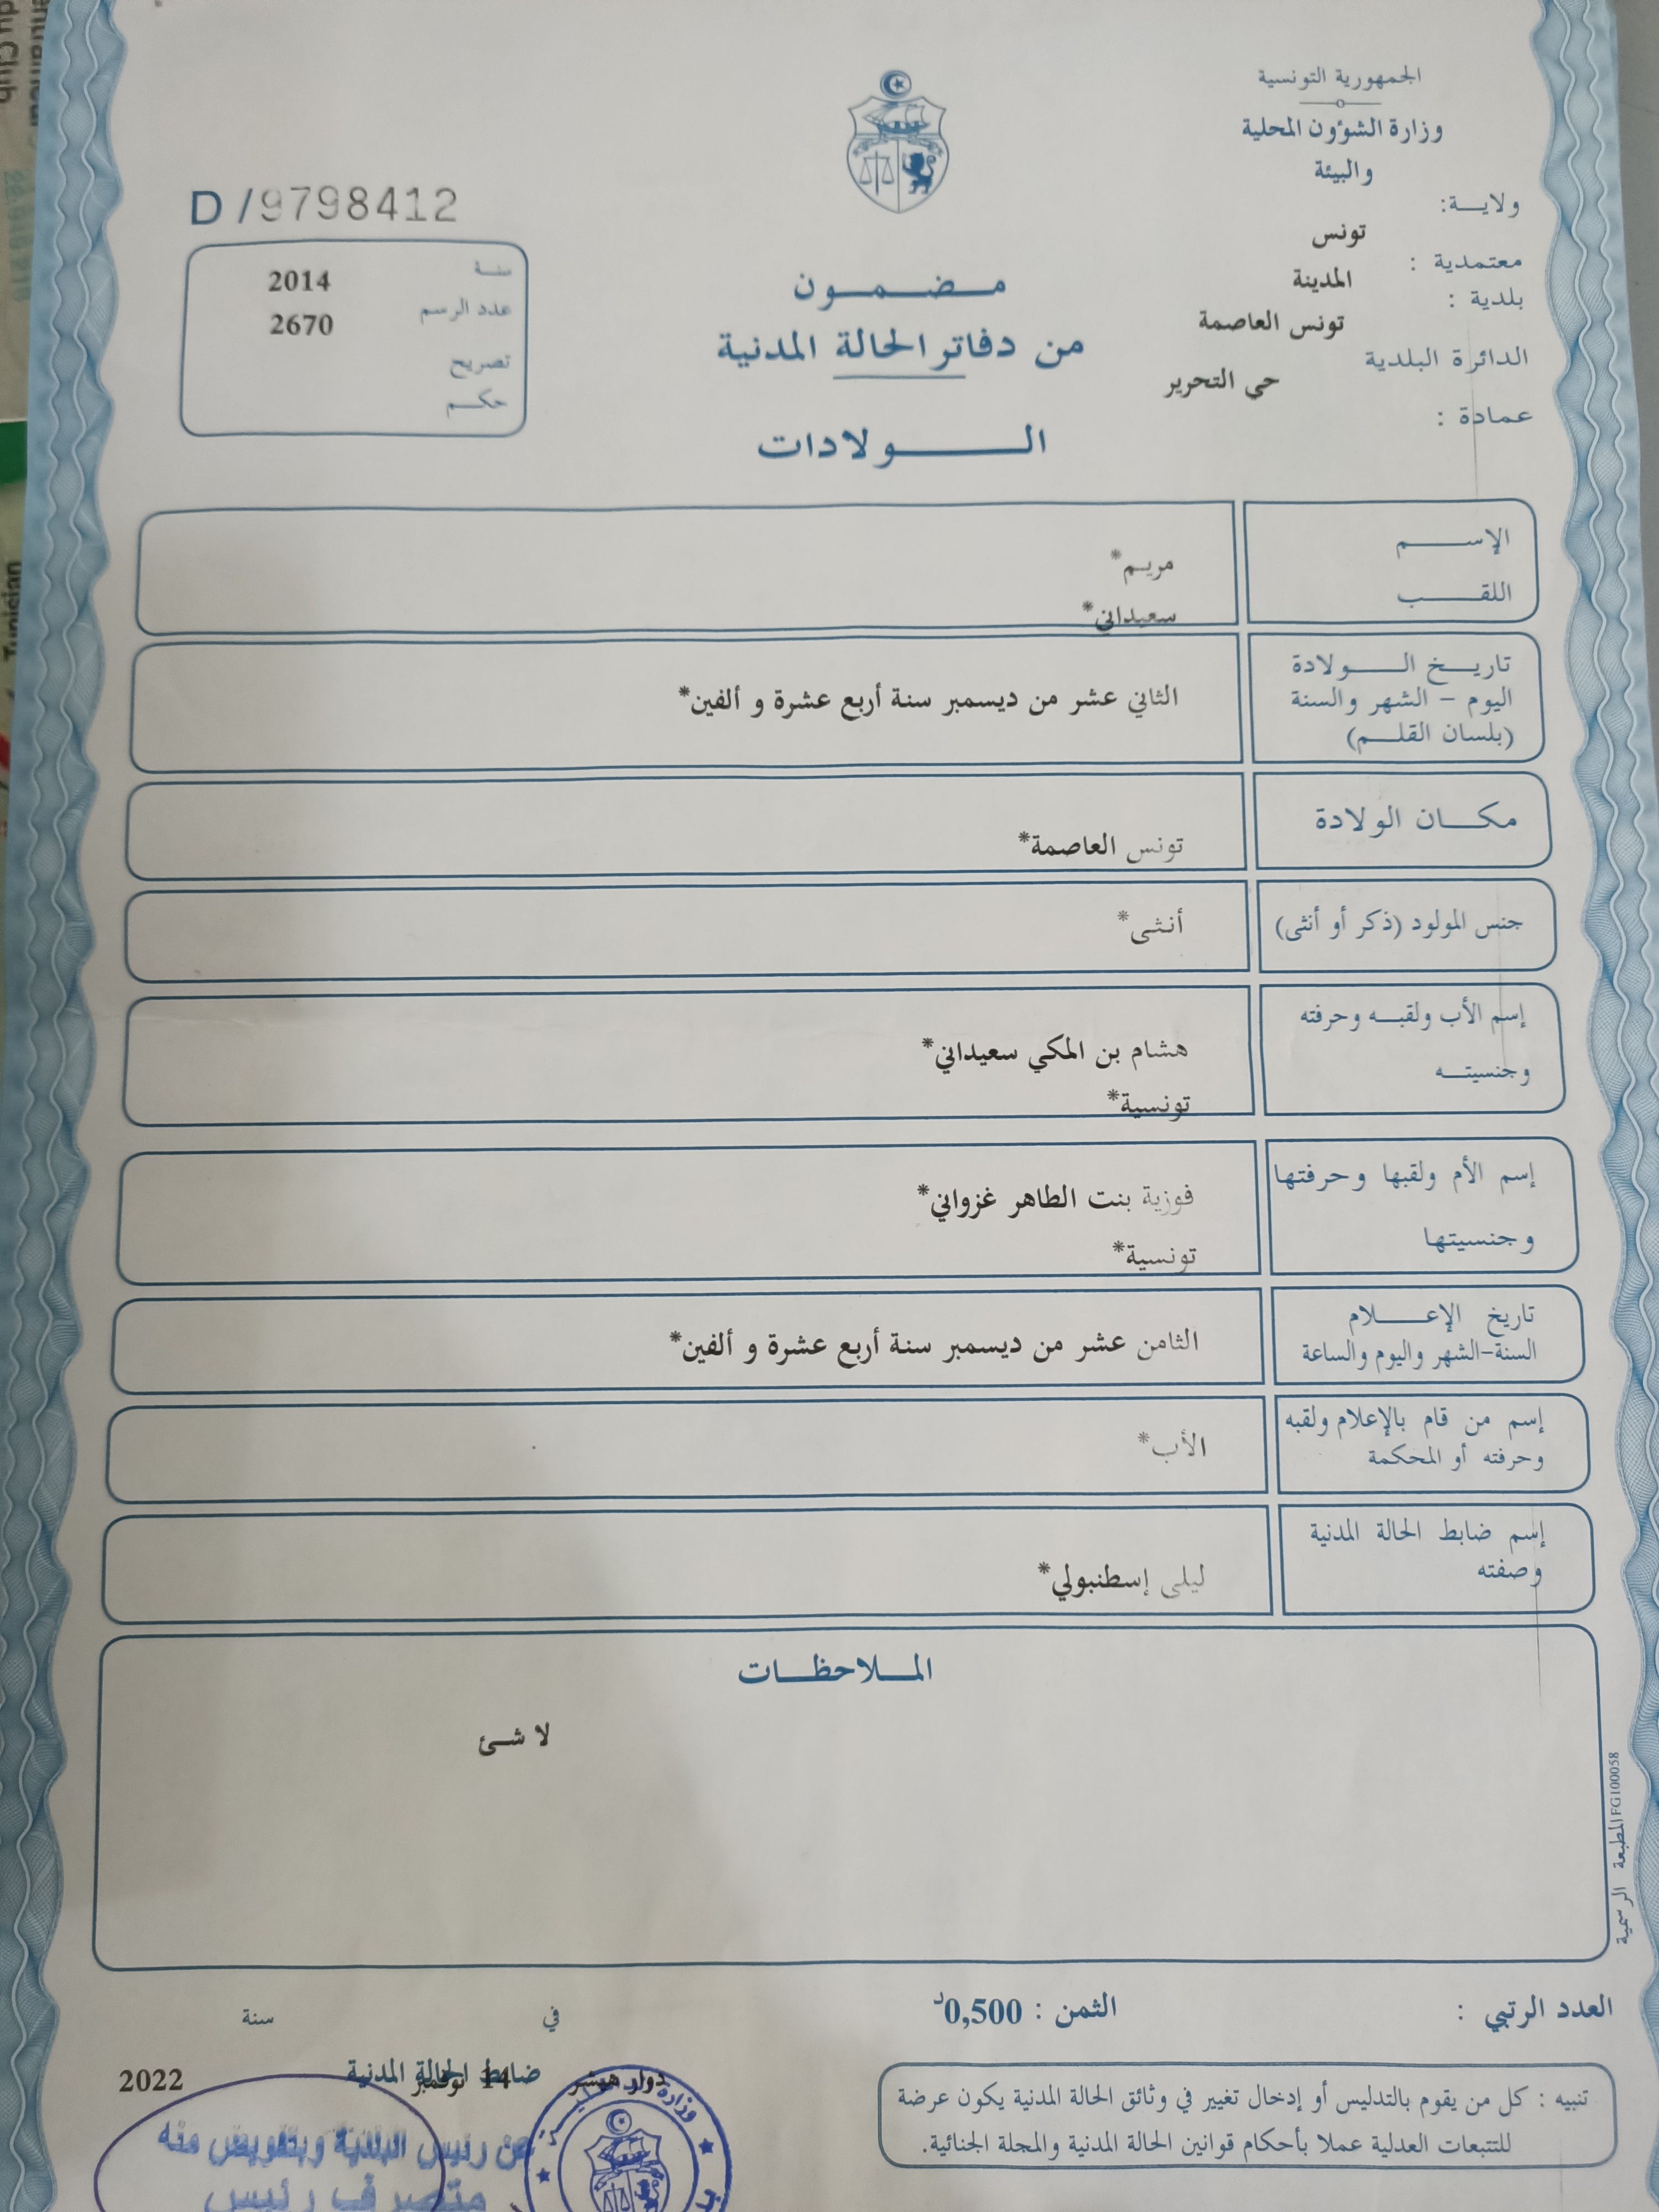 الجمهورية التونسية
وزارة الشؤون المحلية
والبيئة
ولاية:
تونس
معتمدية :
المدينة
بلدية :
تونس العاصمة
الدائرة البلدية
حي التحرير
عمادة :
مضمون
من دفاتر الحالة المدنية
الولادات
D /9798412
سنة 2014
عدد الرسم 2670
تصريح
حكم
الإسم
مريم*
اللقب
سعيداني*
تاريخ الولادة
اليوم - الشهر والسنة
(بلسان القلم)
الثاني عشر من ديسمبر سنة أربع عشرة و ألفين*
مكان الولادة
تونس العاصمة*
جنس المولود (ذكر أو أنثى)
أنثى*
إسم الأب ولقبه وحرفته
وجنسيته
هشام بن المكي سعيداني*
تونسية*
إسم الأم ولقبها وحرفتها
وجنسيتها
فوزية بنت الطاهر غزواني*
تونسية*
تاريخ الإعلام
السنة-الشهر واليوم والساعة
الثامن عشر من ديسمبر سنة أربع عشرة و ألفين*
إسم من قام بالإعلام ولقبه
وحرفته أو المحكمة
الأب*
إسم ضابط الحالة المدنية
وصفته
ليلى إسطنبولي*
الملاحظات
لا شئ
المطبعة الرسمية FG100058
العدد الرتبي :
الثمن : 0,500د
في
سنة
دوار هيشر
14 نوفمبر
2022
ضابط الحالة المدنية
عن رئيس البلدية وبتفويض منه
متصرف رئيس
تنبيه : كل من يقوم بالتدليس أو إدخال تغيير في وثائق الحالة المدنية يكون عرضة
للتتبعات العدلية عملا بأحكام قوانين الحالة المدنية والمجلة الجنائية.
Tunisian